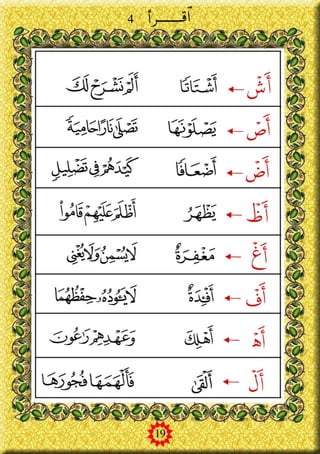 اقـــرأ 4
أَشْ ← أَشْتَاتًا أَلَمْ نَشْرَحْ لَكَ
أَصْ ← يَصْلَوْنَهَا تَصْلَىٰ نَارًا حَامِيَةً
أَضْ ← أَضْعَافًا كَيْدَهُمْ فِي تَضْلِيلٍ
أَظْ ← يَظْهَرُ أَظْلَمَ عَلَيْهِمْ قَامُوا
أَغْ ← مَغْفِرَةٌ لَا يُسْمِنُ وَلَا يُغْنِي
أَفْ ← أَفْئِدَةٌ لَا يَئُودُهُۥ حِفْظُهُمَا
أَهْ ← أَهْلَكَ وَعَهْدِهِمْ رَاعُونَ
أَلْ ← أَلْقَىٰ فَأَلْهَمَهَا فُجُورَهَا
19